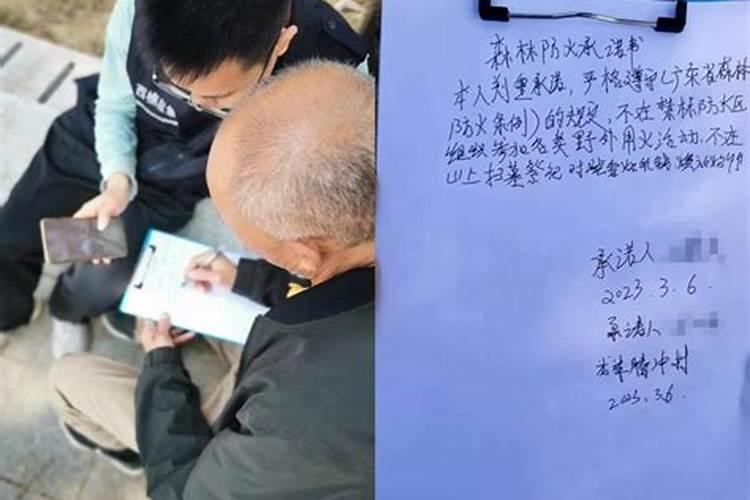 森林防火承诺书
本人郑重承诺，严格遵守《广东省森林
防火条例》的规定，不在禁林防火区
组织参加各类野外用火活动，不在
山上扫墓祭祀时烧香烧
承诺人
2023.3.6.
承诺人
冲村
2023.3.6.